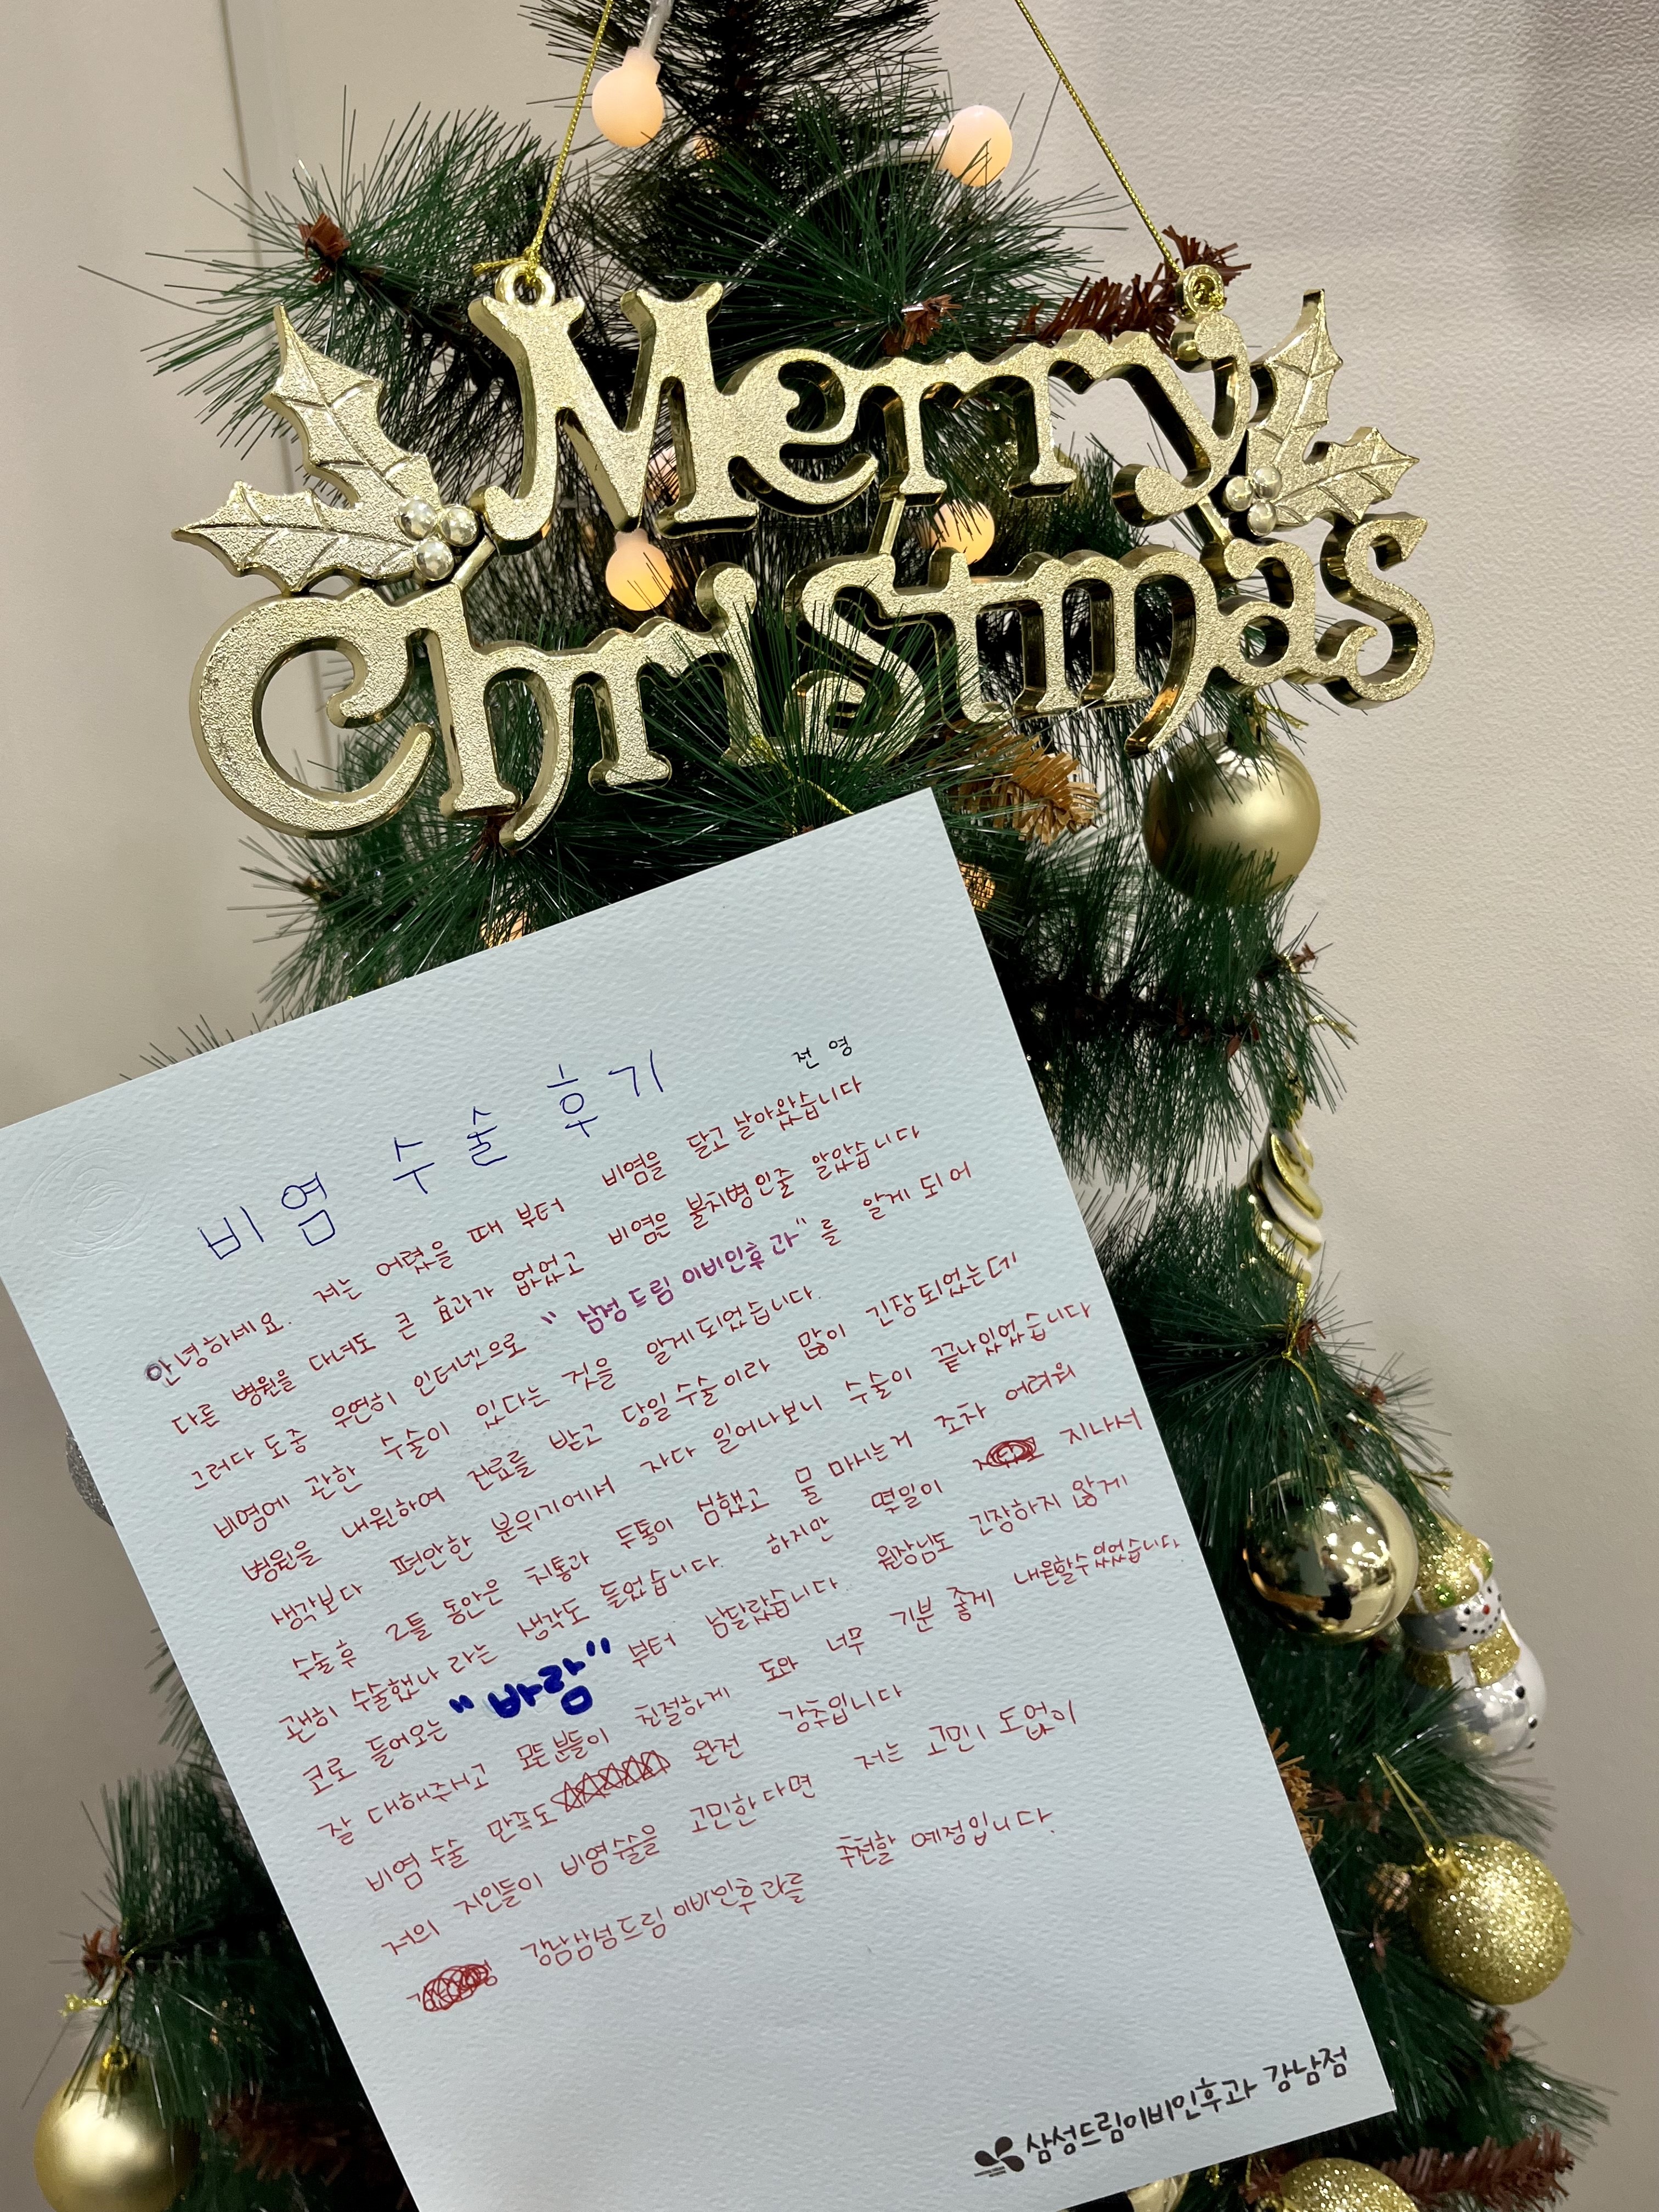 Merry
Christmas
비염 수술 후기
전 영
안녕하세요. 저는 어렸을 때 부터 비염을 달고 살아왔습니다
다른 병원을 다녀도 큰 효과가 없었고 비염은 불치병인줄 알았습니다
그러다 도중 우연히 인터넷으로 "삼성드림 이비인후과"를 알게 되어
비염에 관한 수술이 있다는 것을 알게되었습니다.
병원을 내원하여 진료를 받고 당일수술이라 많이 긴장되었는데
생각보다 편안한 분위기에서 자다 일어나보니 수술이 끝나있었습니다
수술후 2틀 동안은 치통과 두통이 심했고 물 마시는거 조차 어려워
괜히 수술했나 라는 생각도 들었습니다. 하지만 몇일이 지나서
코로 들어오는 "바람" 부터 남달랐습니다. 원장님도 긴장하지 않게
잘 대해주시고 모든분들이 친절하게 도와 너무 기분 좋게 내원할수있었습니다
비염 수술 만족도 ☆☆☆☆☆ 완전 강추입니다
저의 지인들이 비염수술을 고민한다면 저는 고민 도없이
강남삼성드림이비인후과를 추천할 예정입니다.
삼성드림이비인후과 강남점